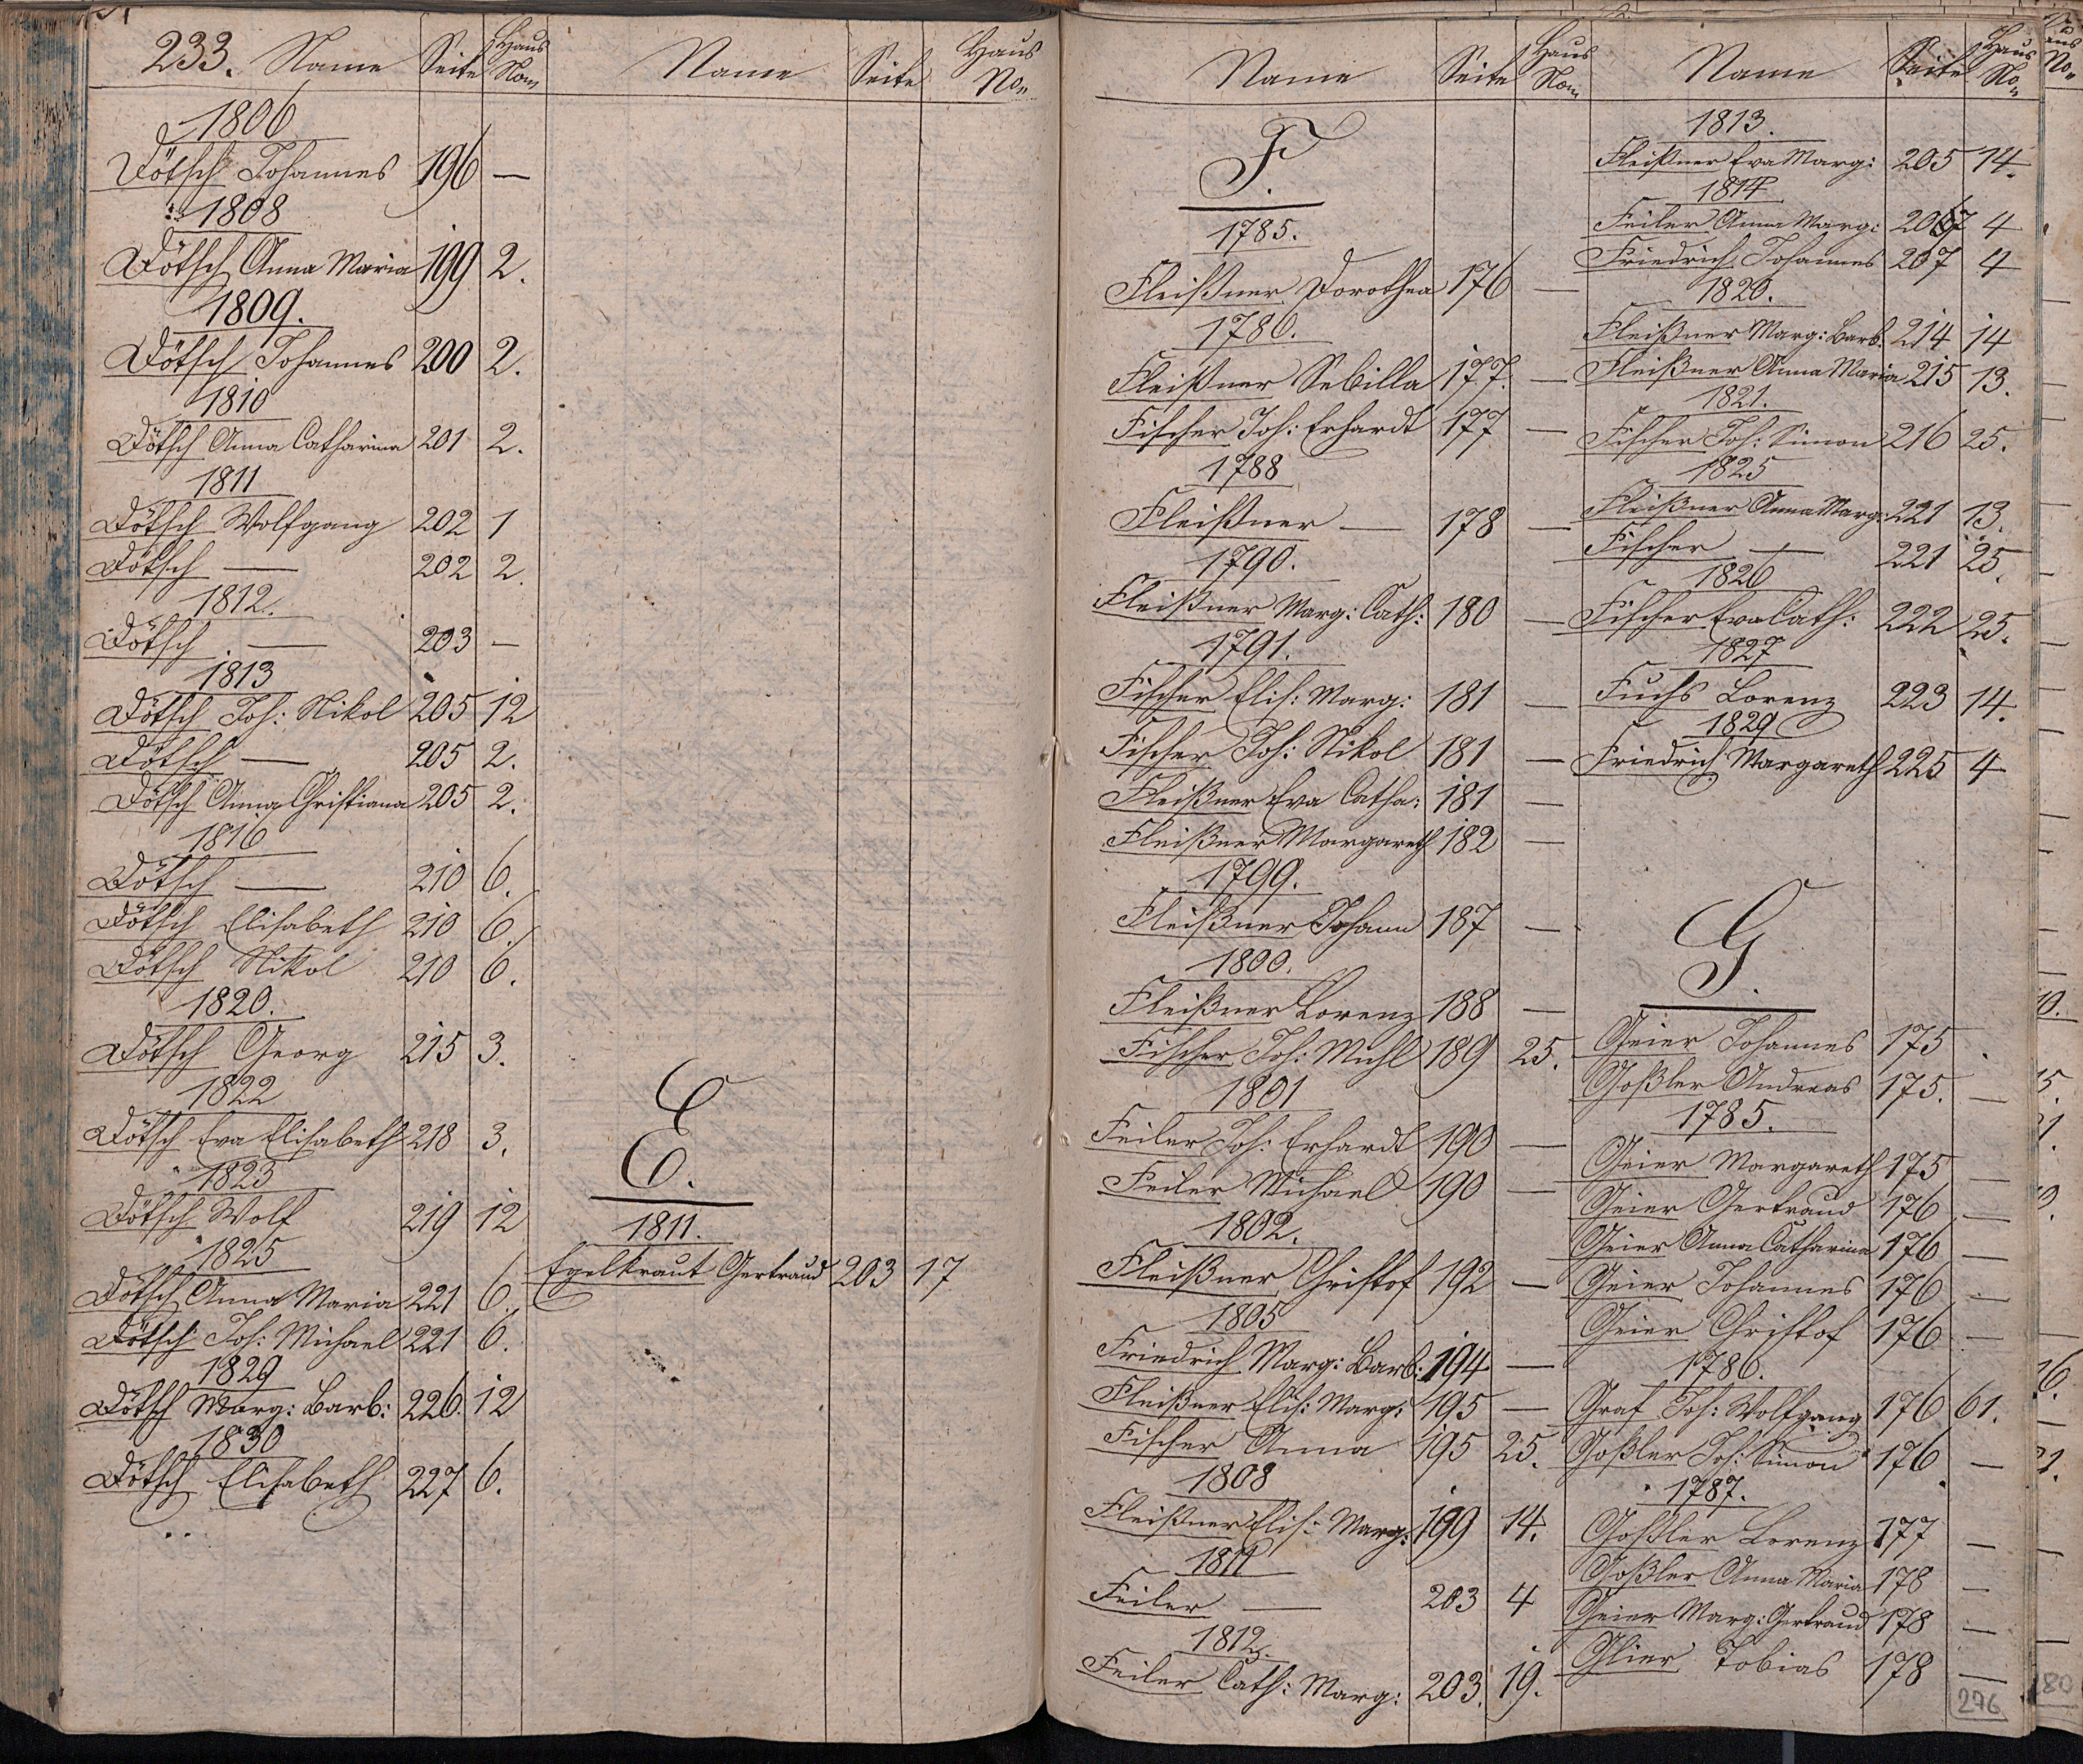 233. Name Seite Haus Nom
1806
Dötsch Johannes 196 —
1808
Dötsch Anna Maria 199 2.
1809.
Dötsch Johannes 200 2.
1810
Dötsch Anna Catharina 201 2.
1811
Dötsch Wolfgang 202 1
Dötsch — 202 2.
1812.
Dötsch — 203 —
1813
Dötsch Joh: Nikol 205 12
Dötsch — 205 2.
Dötsch Anna Christiana 205 2.
1816
Dötsch — 210 6.
Dötsch Elisabeth 210 6.
Dötsch Nikol 210 6.
1820.
Dötsch Georg 215 3.
1822
Dötsch Eva Elisabeth 218 3.
1823
Dötsch Wolf 219 12
1825
Dötsch Anna Maria 221 6.
Dötsch Joh: Michael 221 6.
1829
Dötsch Marg: Barb: 226. 12
1830
Dötsch Elisabeth 227 6.
Name Seite Haus No.
E.
1811.
Egelkraut Gertraud 203 17
Name Seite Haus Nom
F.
1785.
Fleißner Dorothea 176 —
1786.
Fleißner Sebilla 177. —
Fischer Joh: Erhardt 177 —
1788
Fleißner — 178 —
1790.
Fleißner Marg: Cath: 180 —
1791.
Fischer Elis: Marg: 181 —
Fischer Joh: Nikol 181 —
Fleißner Eva Catha: 181 —
Fleißner Margareth 182 —
1799.
Fleißner Johann 187 —
1800.
Fleißner Lorenz 188 —
Fischer Joh: Michl 189 25.
1801
Feiler Joh: Erhardt 190 —
Feiler Michael 190 —
1802.
Fleißner Christof 192 —
1805
Friedrich Marg: Barb: 194 —
Fleißner Elis: Marg: 195 —
Fischer Anna 195 25.
1808
Fleißner Elis: Marg: 199 14.
1811
Feiler — 203 4
1812.
Feiler Cath: Marg: 203. 19.
Name Seite Haus No
1813.
Fleißner Eva Marg: 205 14.
1814
Feiler Anna Marg: 207 4
Friedrich Johannes 207 4
1820.
Fleißner Marg: Barb. 214 14
Fleißner Anna Maria 215 13.
1821.
Fischer Joh: Simon 216 25.
1825
Fleißner Anna Marg: 221 13.
Fischer — 221 25.
1826
Fischer Eva Cath: 222 25.
1827
Fuchs Lorenz 223 14.
1829
Friedrich Margareth 225 4
G.
Geier Johannes 175
Goßler Andreas 175. —
1785.
Geier Margareth 175 —
Geier Gertraud 176 —
Geier Anna Catharina 176 —
Geier Johannes 176 —
Geier Christof 176 —
1786.
Graf Joh: Wolfgang 176 61.
Goßler Joh: Simon 176 —
1787.
Goßler Lorenz 177 —
Goßler Anna Maria 178 —
Geier Marg: Gertraud 178 —
Glier Tobias 178 —
276